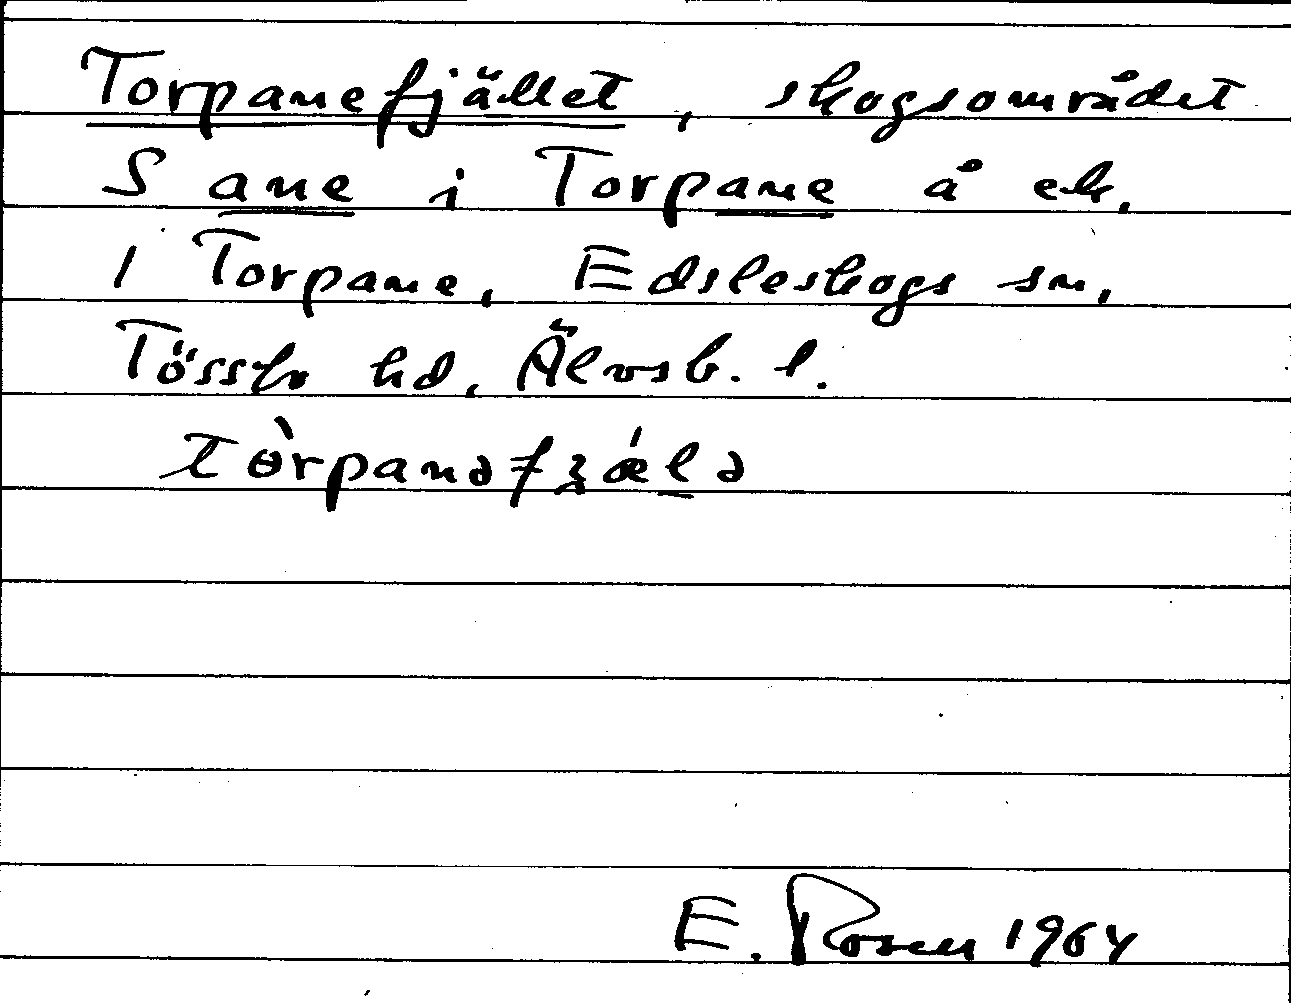 Torpanefjället, skogsområdet
S ane i Torpane å ek.
1 Torpane, Edsleskogs sn,
Tössbo hd, Älvsb. l.
tòrpanəfʒǽlə
E. Rosen 1964